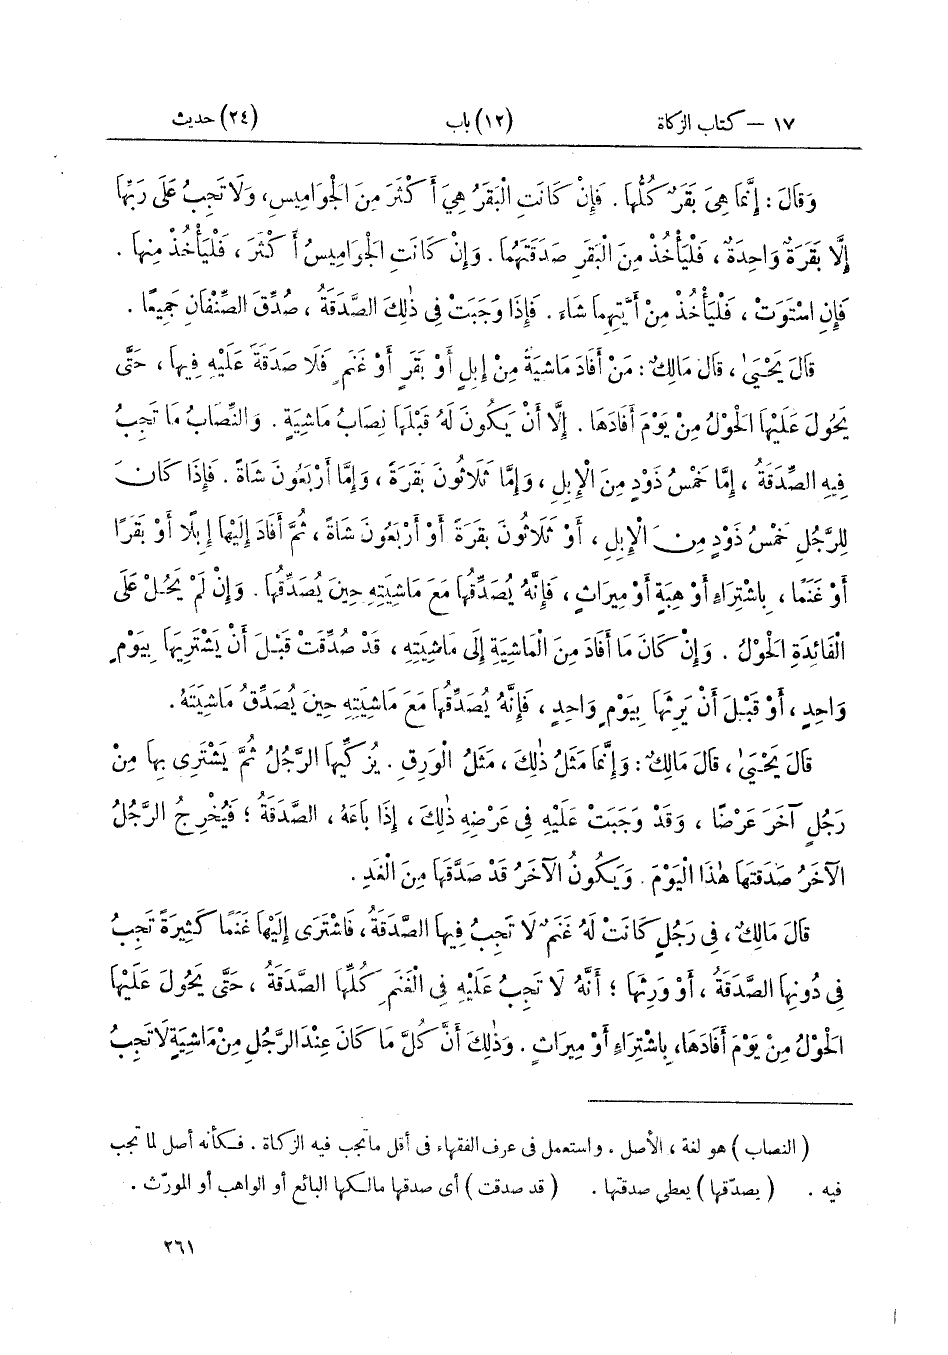 ١٧ – كتاب الزكاة (١٢) باب (٢٤) حديث
وَقَالَ : إِنَّمَا هِىَ بَقَرٌ كُلُّهَا . فَإِنْ كَانَتِ الْبَقَرُ هِيَ أَكْثَرَ مِنَ الْجَوَامِيسِ، وَلَا تَجِبُ عَلَى رَبِّهَا
إِلَّا بَقَرَةٌ وَاحِدَةٌ ، فَلْيَأْخُذْ مِنَ الْبَقَرِ صَدَقَتَهُمَا . وَإِنْ كَانَتِ الْجَوَامِيسُ أَكْثَرَ ، فَلْيَأْخُذْ مِنْهَا .
فَإِنِ اسْتَوَتْ ، فَلْيَأْخُذْ مِنْ أَيَّتِهِمَا شَاءَ . فَإِذَا وَجَبَتْ فِى ذٰلِكَ الصَّدَقَةُ ، صُدِّقَ الصِّنْفَانِ جَمِيعًا .
قَالَ يَحْيَىٰ ، قَالَ مَالِكٌ : مَنْ أَفَادَ مَاشِيَةً مِنْ إِبِلٍ أَوْ بَقَرٍ أَوْ غَنَمٍ فَلَا صَدَقَةَ عَلَيْهِ فِيهَا ، حَتَّى
يَحُولَ عَلَيْهَا الْحَوْلُ مِنْ يَوْمَ أَفَادَهَا . إِلَّا أَنْ يَكُونَ لَهُ قَبْلَهَا نِصَابُ مَاشِيَةٍ . وَالنِّصَابُ مَا تَجِبُ
فِيهِ الصَّدَقَةُ ، إِمَّا خَمْسُ ذَوْدٍ مِنَ الْإِبِلِ ، وَإِمَّا ثَلَاثُونَ بَقَرَةً ، وَإِمَّا أَرْبَعُونَ شَاةً . فَإِذَا كَانَ
لِلرَّجُلِ خَمْسُ ذَوْدٍ مِنَ الْإِبِلِ ، أَوْ ثَلَاثُونَ بَقَرَةً أَوْ أَرْبَعُونَ شَاةً ، ثُمَّ أَفَادَ إِلَيْهَا إِبِلًا أَوْ بَقَرًا
أَوْ غَنَمًا ، بِاشْتِرَاءٍ أَوْ هِبَةٍ أَوْ مِيرَاثٍ ، فَإِنَّهُ يُصَدِّقُهَا مَعَ مَاشِيَتِهِ حِينَ يُصَدِّقُهَا . وَإِنْ لَمْ يَحُلْ عَلَى
الْفَائِدَةِ الْحَوْلُ . وَإِنْ كَانَ مَا أَفَادَ مِنَ الْمَاشِيَةِ إِلَى مَاشِيَتِهِ ، قَدْ صُدِّقَتْ قَبْلَ أَنْ يَشْتَرِيَهَا بِيَوْمٍ
وَاحِدٍ ، أَوْ قَبْلَ أَنْ يَرِثَهَا بِيَوْمٍ وَاحِدٍ ، فَإِنَّهُ يُصَدِّقُهَا مَعَ مَاشِيَتِهِ حِينَ يُصَدِّقُ مَاشِيَتَهُ .
قَالَ يَحْيَىٰ ، قَالَ مَالِكٌ : وَإِنَّمَا مَثَلُ ذٰلِكَ ، مَثَلُ الْوَرِقِ . يُزَكِّيهَا الرَّجُلُ ثُمَّ يَشْتَرِى بِهَا مِنْ
رَجُلٍ آخَرَ عَرْضًا ، وَقَدْ وَجَبَتْ عَلَيْهِ فِى عَرْضِهِ ذٰلِكَ ، إِذَا بَاعَهُ ، الصَّدَقَةُ ؛ فَيُخْرِجُ الرَّجُلُ
الْآخَرُ صَدَقَتَهَا هٰذَا الْيَوْمَ . وَيَكُونُ الْآخَرُ قَدْ صَدَّقَهَا مِنَ الْغَدِ .
قَالَ مَالِكٌ ، فِى رَجُلٍ كَانَتْ لَهُ غَنَمٌ لَا تَجِبُ فِيهَا الصَّدَقَةُ ، فَاشْتَرَى إِلَيْهَا غَنَمًا كَثِيرَةً تَجِبُ
فِى دُونِهَا الصَّدَقَةُ ، أَوْ وَرِثَهَا ؛ أَنَّهُ لَا تَجِبُ عَلَيْهِ فِى الْغَنَمِ كُلِّهَا الصَّدَقَةُ ، حَتَّى يَحُولَ عَلَيْهَا
الْحَوْلُ مِنْ يَوْمَ أَفَادَهَا، بِاشْتِرَاءٍ أَوْ مِيرَاثٍ . وَذٰلِكَ أَنَّ كُلَّ مَا كَانَ عِنْدَ الرَّجُلِ مِنْ مَاشِيَةٍ لَا تَجِبُ
( النصاب ) هو لغة ، الأصل . واستعمل فى عرف الفقهاء فى أقل ما تجب فيه الزكاة . فكأنه أصل لما تجب
فيه . ( يصدّقها ) يعطى صدقتها . ( قد صدقت ) أى صدقها مالكها البائع أو الواهب أو المورّث .
٢٦١